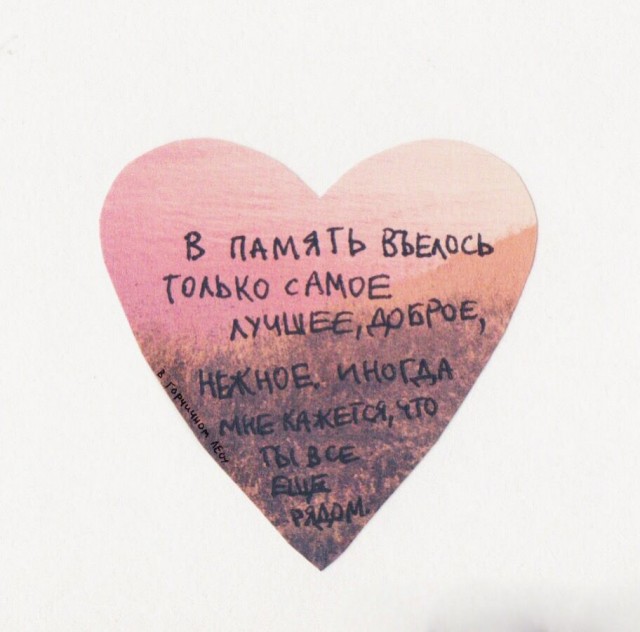 В ПАМЯТЬ ВЪЕЛОСЬ
ТОЛЬКО САМОЕ
ЛУЧШЕЕ, ДОБРОЕ,
НЕЖНОЕ. ИНОГДА
МНЕ КАЖЕТСЯ, ЧТО
ТЫ ВСЕ
ЕЩЕ
РЯДОМ.
В ГОРЧИЧНОМ ЛЕСУ